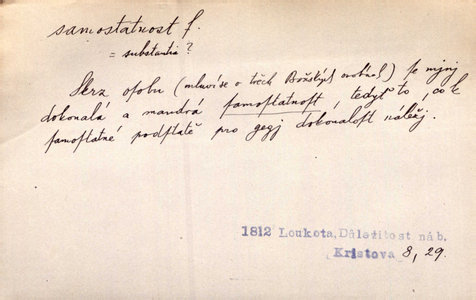 samostatnost f.
= substantia?
Skrz osobu (mluví se o třech Božských osobách) se myslj
dokonalá a maudrá samostatnost, tedyť to, co k
samostatné podstatě pro gegj dokonalost náležj.
1812 Loukota, Důležitost náb.
Kristova 8, 29.